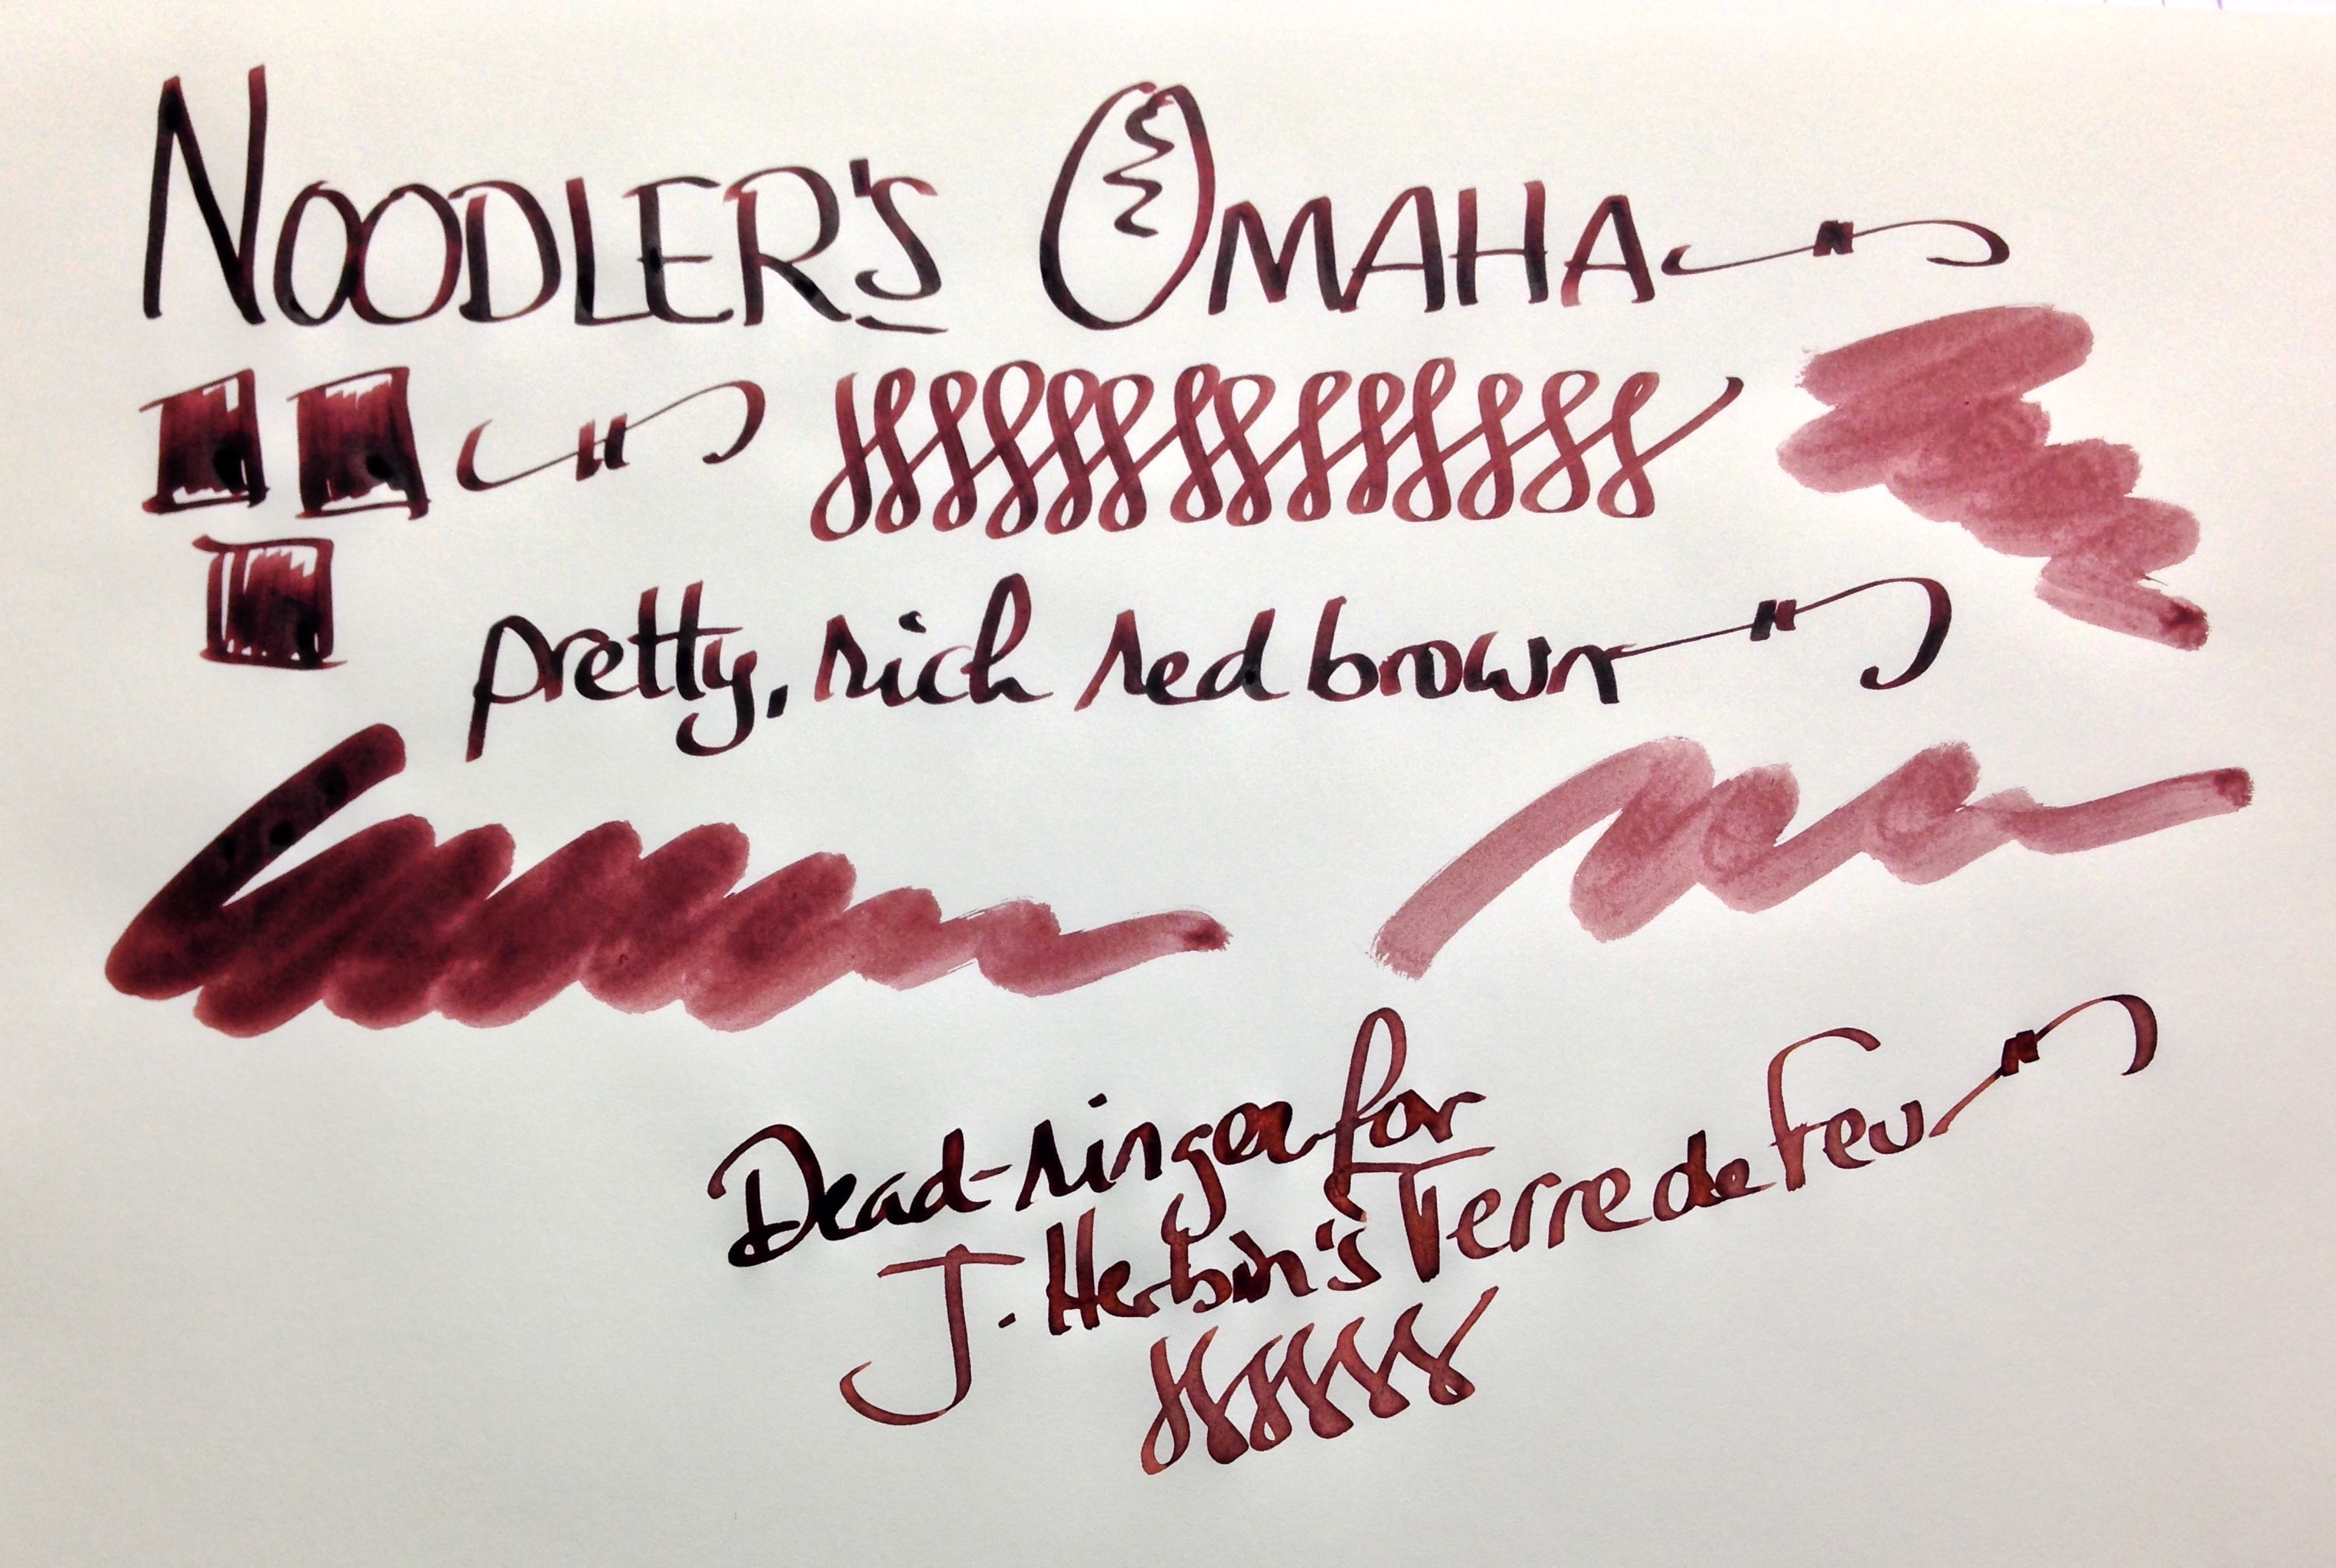 NOODLER'S OMAHA
pretty, rich red brown
Dead-ringer for
J. Herbin's Terre de Feu